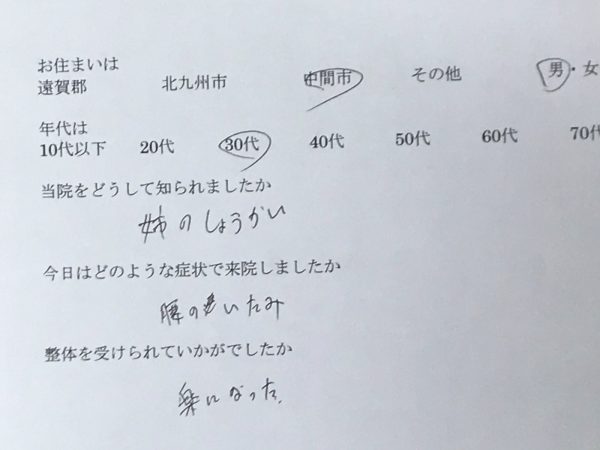 お住まいは
遠賀郡 北九州市 中間市 その他 男・女
年代は
10代以下 20代 30代 40代 50代 60代 70代
当院をどうして知られましたか
姉のしょうかい
今日はどのような症状で来院しましたか
腰のいたみ
整体を受けられていかがでしたか
楽になった。